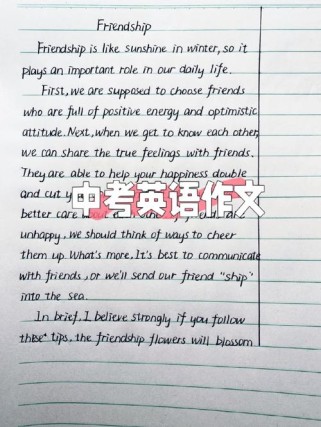 Friendship
Friendship is like sunshine in winter, so it
plays an important role in our daily life.
First, we are supposed to choose friends
who are full of positive energy and optimistic
attitude. Next, when we get to know each other,
we can share the true feelings with friends.
They are able to help your happiness double
and cut y
中考英语作文
better care
unhappy, we should think of ways to cheer
them up. What's more, It's best to communicate
with friends, or we'll send our friend "ship"
into the sea.
In brief, I believe strongly if you follow
these tips, the friendship flowers will blossom